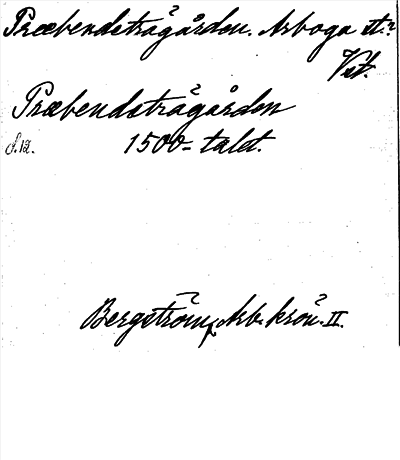 Præbendsträgården. Arboga st.
Vstl.
Præbendsträgården
S.12. 1500-talet.
Bergström, Arb. krön. II.